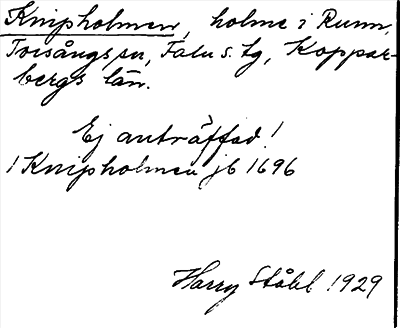 Knipholmen, holme i Runn,
Torsångs sn, Falu s. tg, Koppar-
bergs län.
Ej anträffad!
1 Knipholmen jb 1696
Harry Ståhl 1929